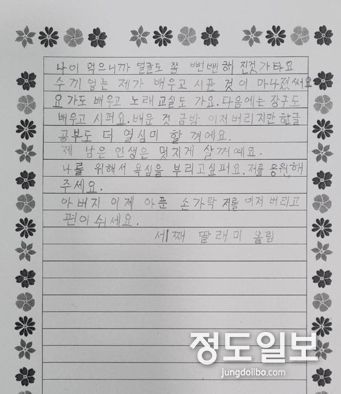 나이 먹으니까 얼굴도 좀 뻔뻔해 진것가타요
수끼 없는 제가 배우고 시푼 것이 마나졌써요
요가도 배우고 노래교실도 가요. 다음에는 장구도
배우고 시퍼요. 배운 것 금방 이저버리지만 한글
공부도 더 열심미 할 꺼에요.
제 남은 인생은 멋지게 살꺼예요.
나를 위해서 욕심을 부리고싶퍼요. 저를 응원해
주세요.
아버지 이제 아푼 손가락 저를 이저 버리고
편이쉬세요.
세째 딸래미 올림
정도일보
jungdoilbo.com